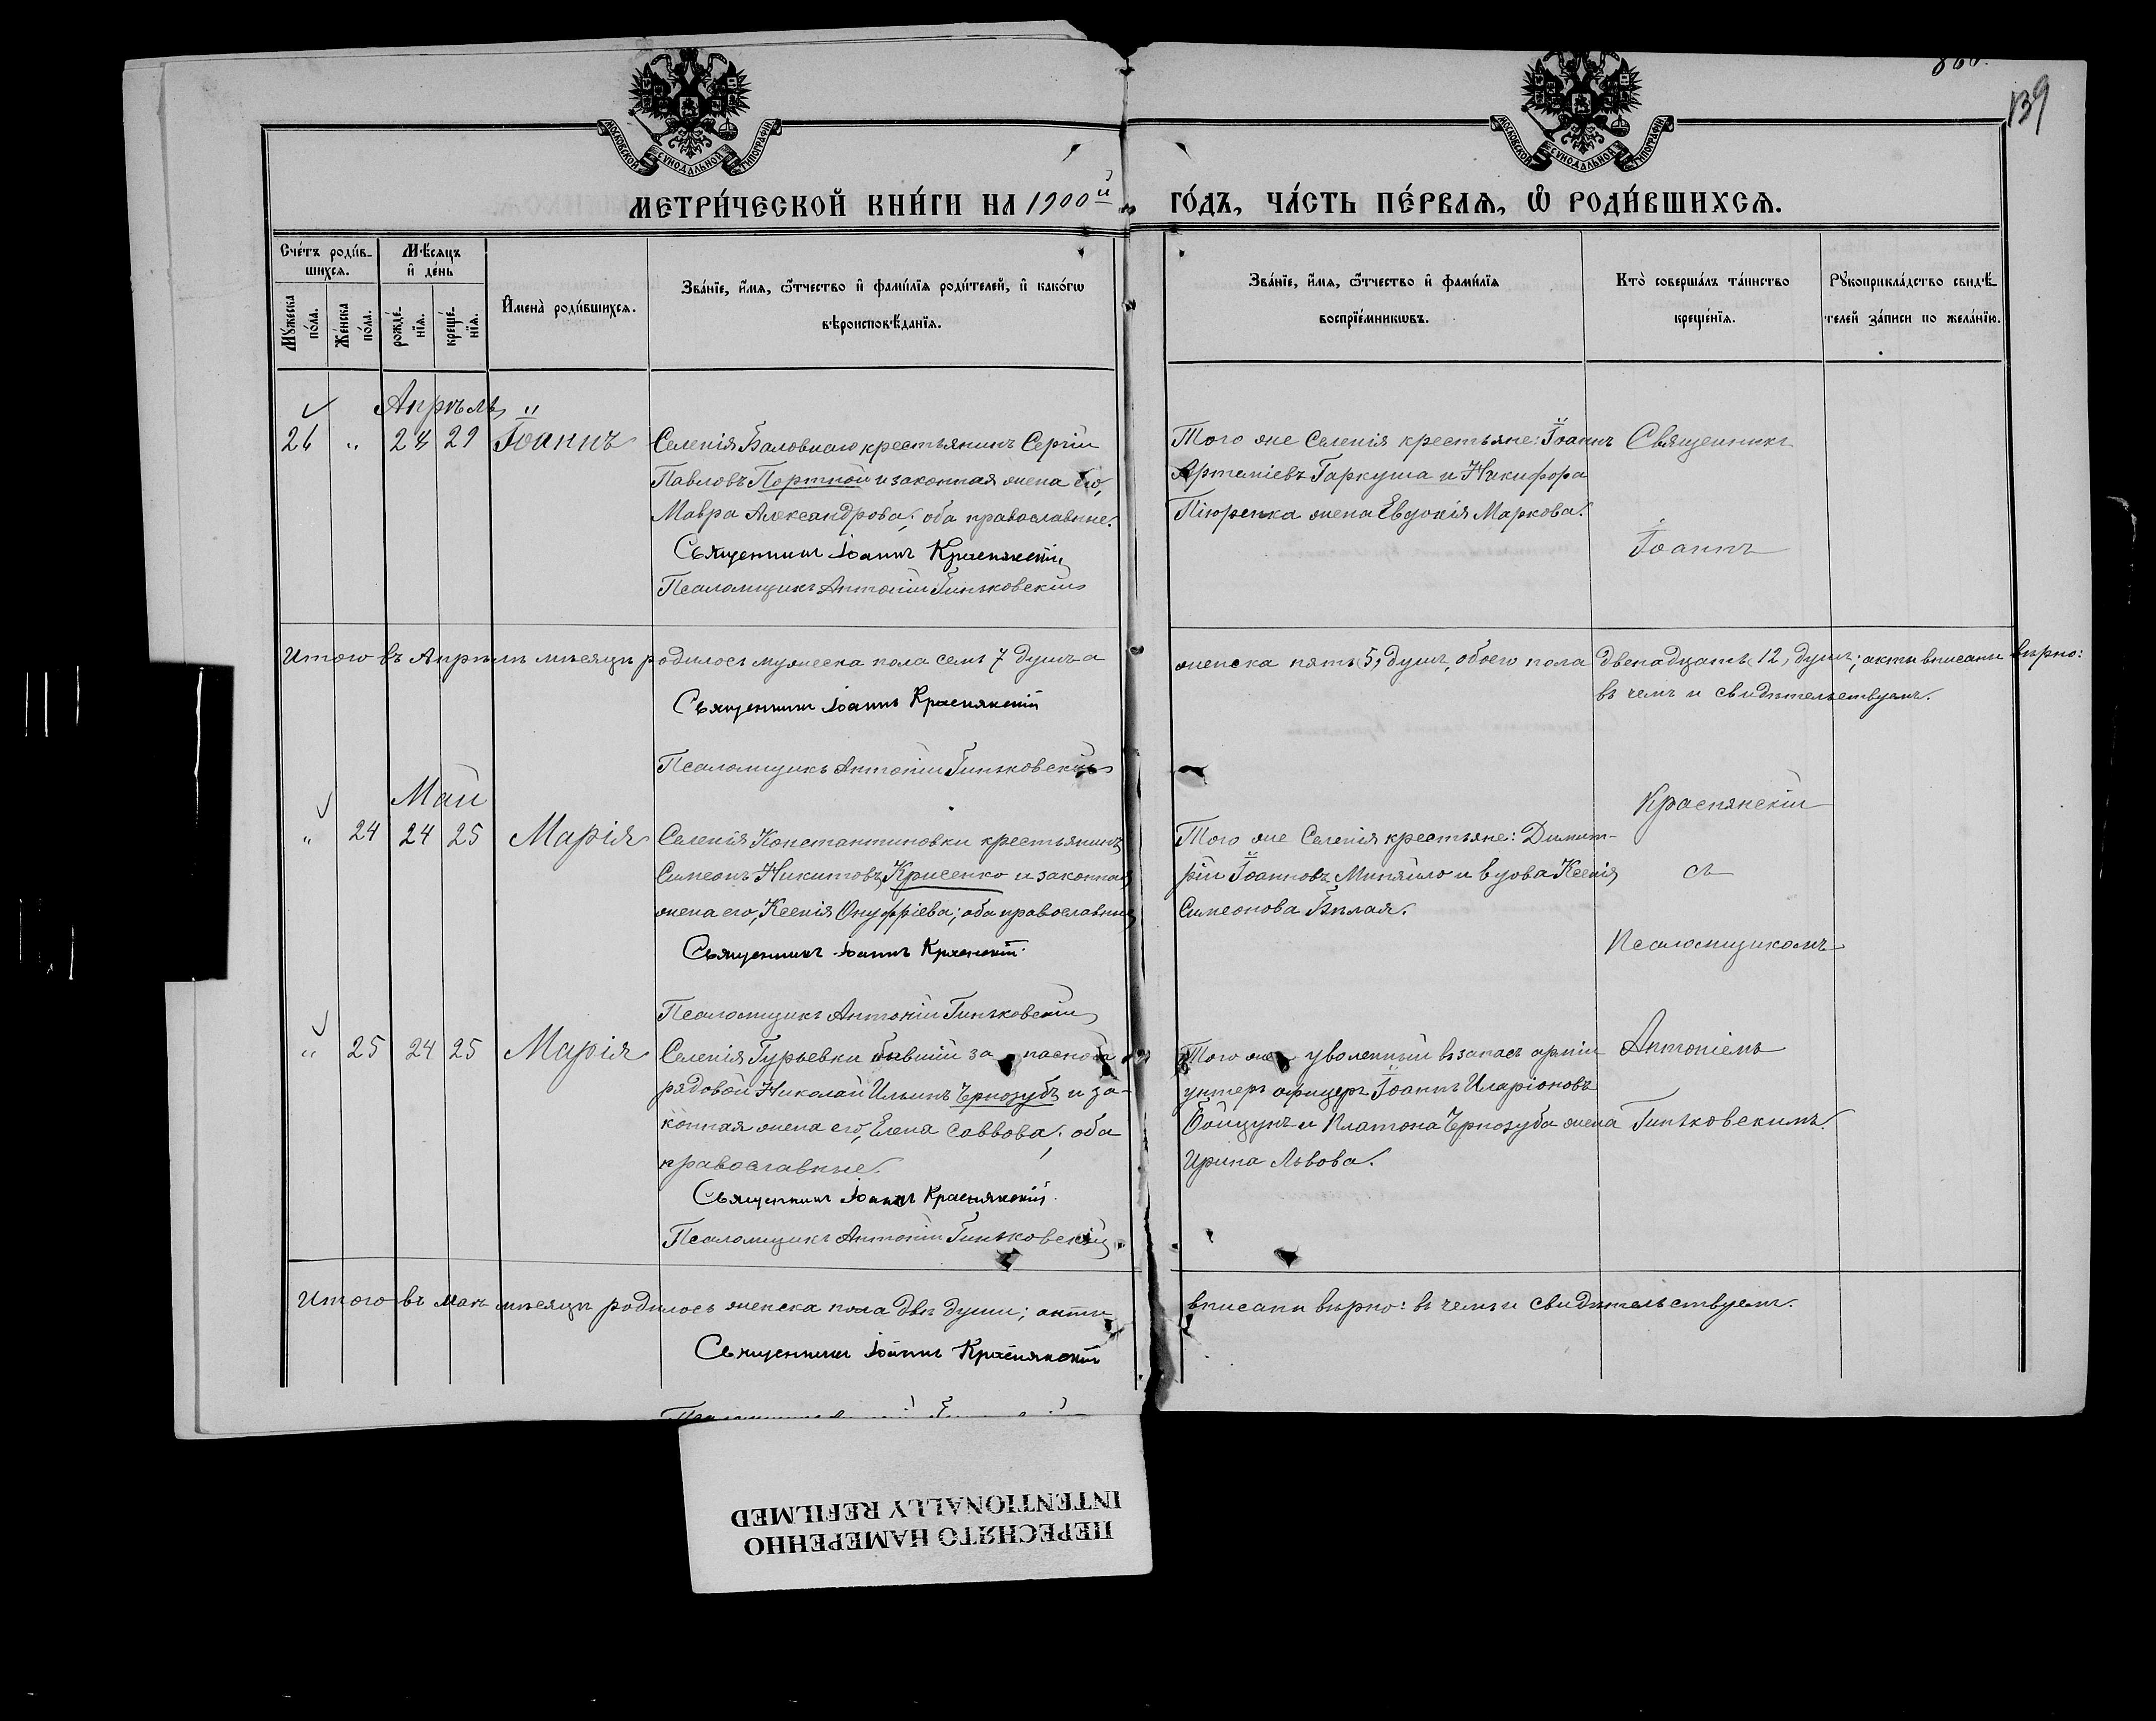 139
МОСКОВСКОЙ СѴНОДАЛЬНОЙ ТИПОГРАФІИ
МОСКОВСКОЙ СѴНОДАЛЬНОЙ ТИПОГРАФІИ
МЕТРИ́ЧЕСКОЙ КНИ́ГИ НА 1900й
ГО́ДЪ, ЧА́СТЬ ПЕ́РВАѦ, Ѡ҆ РОДИ́ВШИХСѦ.
Сче́тъ роди́в-
шихсѧ.
Мꙋ́жеска по́ла.
Же́нска по́ла.
Мѣ́сѧцъ
и҆ де́нь
рожде́-
нїѧ.
креще́-
нїѧ.
И҆мена̀ роди́вшихсѧ.
Зва́нїе, и҆́мѧ, ѻ҆́тчество и҆ фами́лїѧ роди́телей, и҆ како́гѡ
вѣроисповѣ́данїѧ.
Зва́нїе, и҆́мѧ, ѻ҆́тчество и҆ фами́лїѧ
воспрїе́мникѡвъ.
Кто̀ соверша́лъ та́инство
креще́нїѧ.
Рꙋкоприкла́дство свидѣ́-
телей за́писи по жела́нїю.
Апрѣль
26 " 28 29 Іоаннъ
Селенія Баловнаго крестьянинъ Сергій
Павловъ Портной и законная жена его,
Мавра Александрова; оба православные.
Священникъ Іоаннъ Краснянскій
Псаломщикъ Антоній Гиньковскій
Того же Селенія крестьяне: Іоаннъ
Артеміевъ Гаркуша и Никифора
Пиюренка жена Евдокія Маркова.
Священникъ
Іоаннъ
Итого въ Апрѣлѣ мѣсяцѣ родилось мужеска пола семь 7 душъ а
женска пять, 5, душъ, обоего пола двенадцать, 12, душъ; акты вписаны вѣрно:
въ чемъ и свидѣтельствуемъ.
Священникъ Іоаннъ Краснянскій
Псаломщикъ Антоній Гиньковскій
Май
" 24 24 25 Марія
Селенія Константиновки крестьянинъ
Симеонъ Никитовъ Крисенко и законная
жена его, Ксенія Онуфріева; оба православные
Священникъ Іоаннъ Краснянскій
Псаломщикъ Антоній Гиньковскій
Того же Селенія крестьяне: Димит-
рій Іоанновъ Миняйло и вдова Ксенія
Симеонова Бѣлая.
Краснянскій
съ
Псаломщикомъ
" 25 24 25 Марія
Селенія Гурьевки бывшій запасной
рядовой Николай Ильинъ Чернозубъ и за-
конная жена его, Елена Саввова; оба
православные.
Священникъ Іоаннъ Краснянскій
Псаломщикъ Антоній Гиньковскій
Того же уволенный въ запасъ арміи
унтеръ офицеръ Іоаннъ Иларіоновъ
Бойцунъ и Платона Чернозуба жена
Ирина Львова.
Антоніемъ
Гиньковскимъ.
Итого въ маѣ мѣсяцѣ родилось женска пола двѣ души; акты
вписаны вѣрно: въ чемъ и свидѣтельствуемъ.
Священникъ Іоаннъ Краснянскій
ПЕРЕСНЯТО НАМЕРЕННО
INTENTIONALLY REFILMED